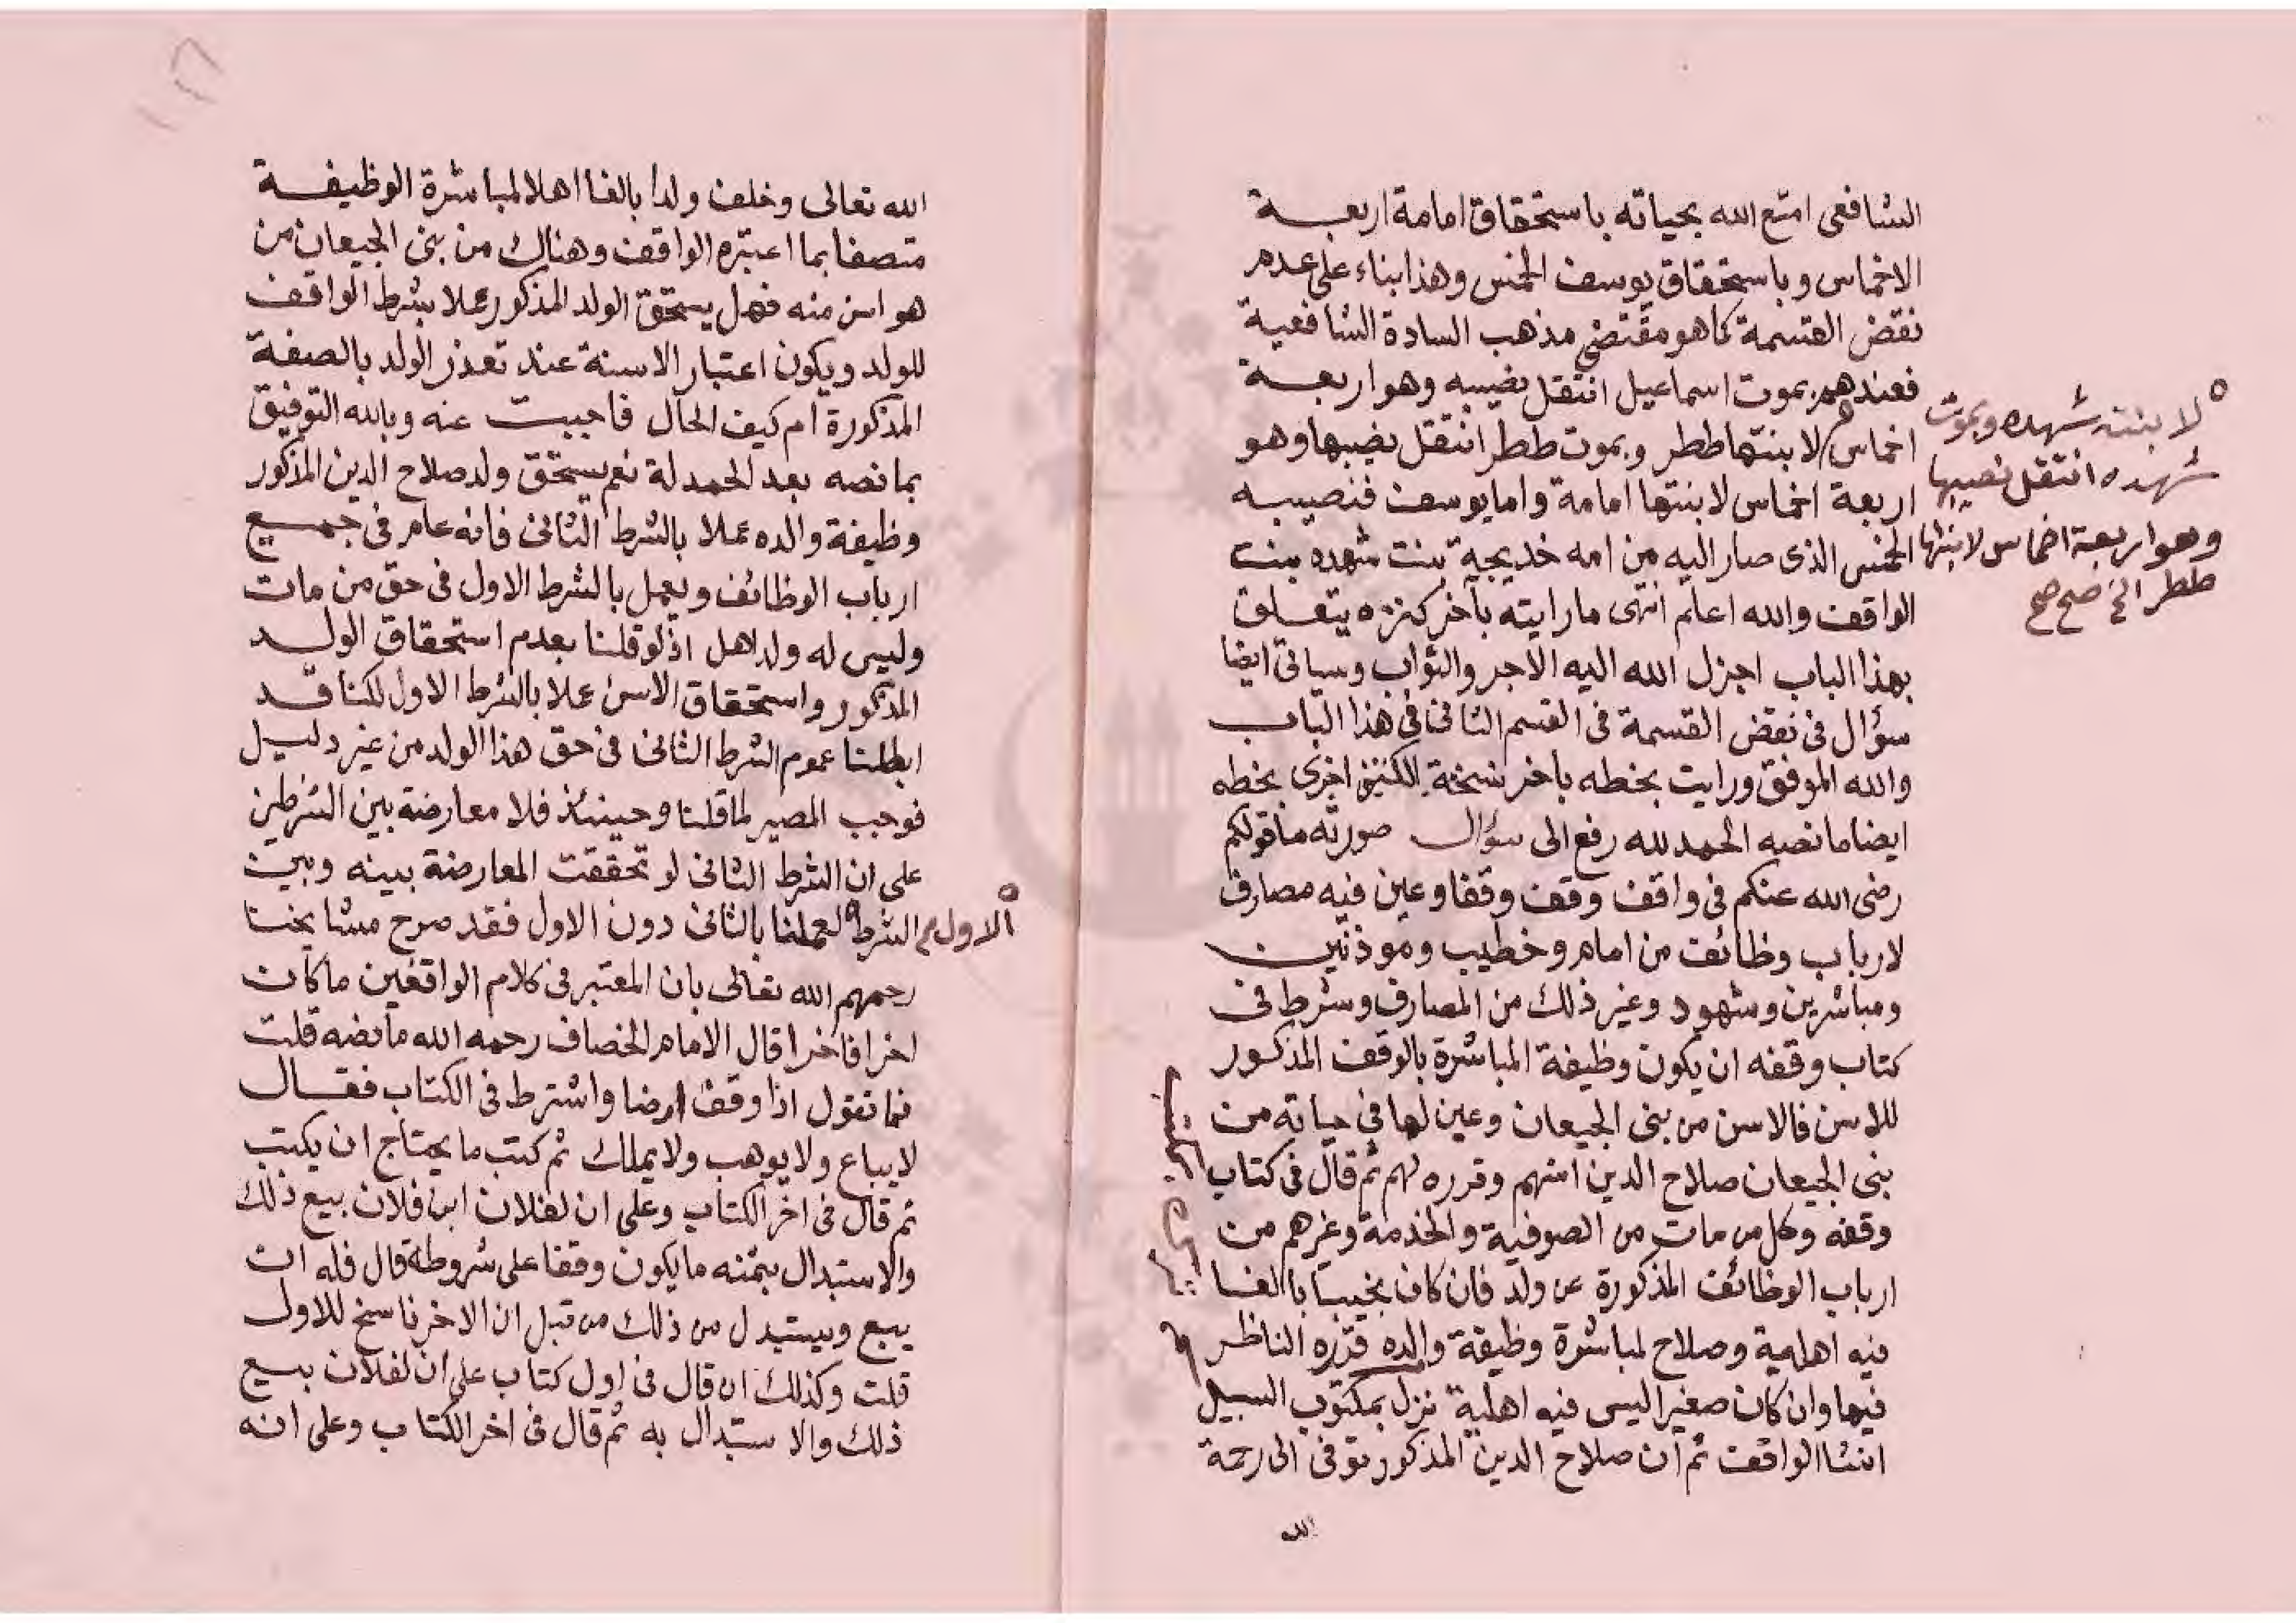 الشافعى امتع الله بحياته باستحقاق امامة اربعة
الاخماس وباستحقاق يوسف الخمس وهذا بناء على عدم
نقض القسمة كما هو مقتضى مذهب السادة الشافعية
فعندهم بموت اسماعيل انتقل نصيبه وهو اربعة
اخماس لابنتها ططر وبموت ططر انتقل نصيبها وهو
لابنته شهده وبموت
شهده انتقل نصيبها
وهو اربعة اخماس لابنتها
ططر الخ صح صح
اربعة اخماس لابنتها امامة واما يوسف فنصيبه
الخمس الذى صار اليه من امه خديجة بنت شهده بنت
الواقف والله اعلم انتهى ما رايته بآخر كنزه يتعلق
بهذا الباب اجزل الله اليه الاجر والثواب وسياتى ايضا
سؤال فى نقض القسمة فى القسم الثانى فى هذا الباب
والله الموفق ورايت بخطه باخر نسخة الكنز اخرى بخطه
ايضا ما نصه الحمد لله رفع الى سؤال صورته ما قولكم
رضى الله عنكم فى واقف وقف وقفا وعين فيه مصارف
لارباب وظائف من امام وخطيب وموذنين
ومباشرين وشهود وغير ذلك من المصارف وشرط فى
كتاب وقفه ان يكون وظيفة المباشرة بالوقف المذكور
للاسن فالاسن من بنى الجيعان وعين لها فى حياته من
بنى الجيعان صلاح الدين اسنهم وقرره لهم ثم قال فى كتاب
وقفه وكل من مات من الصوفية والخدمة وغرهم من
ارباب الوظائف المذكورة عن ولد فان كان نجيبا بالغا
فيه اهلية وصلاح لمباشرة وظيفة والده قرره الناظر
فيها وان كان صغيرا ليس فيه اهلية نزل بمكتوب السبيل
انشا الواقف ثم ان صلاح الدين المذكور توفى الى رحمة
الله
١٢٦
الله تعالى وخلف ولدا بالغا اهلا لمباشرة الوظيفة
متصفا بما اعتبره الواقف وهناك من بنى الجيعان من
هو اسن منه فهل يستحق الولد المذكور عملا بشرط الواقف
للولد ويكون اعتبار الاسنة عند تعذر الولد بالصفة
المذكورة ام كيف الحال فاجبت عنه وبالله التوفيق
بما نصه بعد الحمد لة نعم يستحق ولد صلاح الدين المذكور
وظيفة والده عملا بالشرط الثانى فانه عام فى جميع
ارباب الوظائف ويعمل بالشرط الاول فى حق من مات
وليس له ولد اهل اذ لو قلنا بعدم استحقاق الولد
المذكور واستحقاق الاسن عملا بالشرط الاول لكنا قد
ابطلنا عموم الشرط الثانى فى حق هذا الولد من غير دليل
فوجب المصير لما قلنا وحينئذ فلا معارضة بين الشرطين
على ان الشرط الثانى لو تحققت المعارضة بينه وبين
الشرط لعملنا بالثانى دون الاول فقد صرح مشايخنا
الاول
رحمهم الله تعالى بان المعتبر فى كلام الواقفين ما كان
اخرا فاخرا قال الامام الخصاف رحمه الله ما نصه قلت
فما تقول اذا وقف ارضا واشترط فى الكتاب فقال
لا يباع ولا يوهب ولا يملك ثم كتب ما يحتاج ان يكتب
ثم قال فى اخر الكتاب وعلى ان لفلان ابن فلان بيع ذلك
والاستبدال بثمنه ما يكون وقفا على شروطه قال فله ان
يبيع ويستبدل من ذلك من قبل ان الاخر ناسخ للاول
قلت وكذلك ان قال فى اول كتاب على ان لفلان بيع
ذلك والاستبدال به ثم قال فى اخر الكتاب وعلى انه